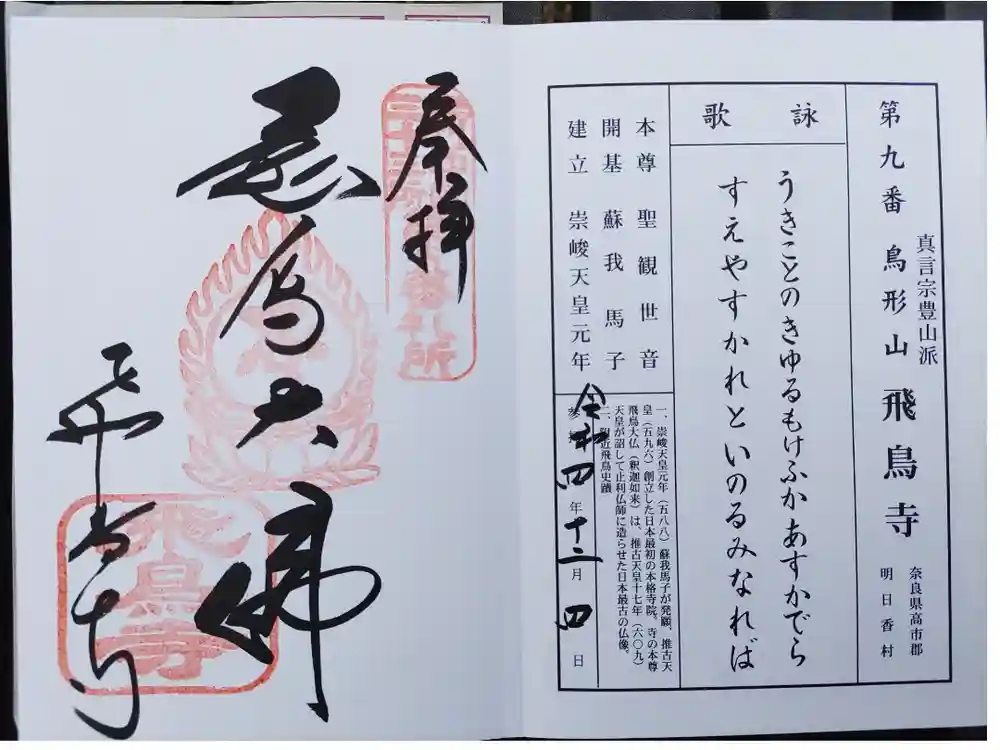 第九番 鳥形山 飛鳥寺
真言宗豊山派
奈良県高市郡
明日香村
詠歌
うきことのきゆるもけふかあすかでら
すえやすかれといのるみなれば
本尊 聖観世音
開基 蘇我馬子
建立 崇峻天皇元年
一、崇峻天皇元年(五八八)蘇我馬子が発願、推古天
皇(五九六)創立した日本最初の本格寺院。寺の本尊
飛鳥大仏(釈迦如来)は、推古天皇十七年(六〇九)
天皇が詔して止利仏師に造らせた日本最古の仏像。
二、附近飛鳥史蹟
令和四年十二月四日
奉拝
飛鳥大佛
飛鳥寺
飛鳥寺